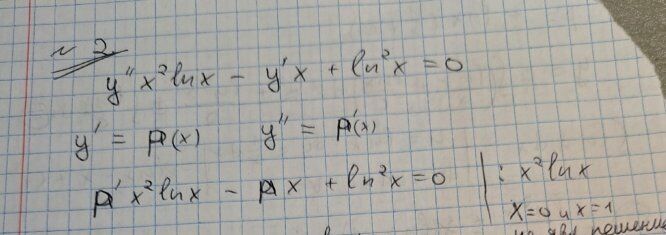 № 2
y'' x² ln x − y' x + ln² x = 0
y' = p(x) y'' = p'(x)
p' x² ln x − p x + ln² x = 0 | : x² ln x
x=0 и x=1